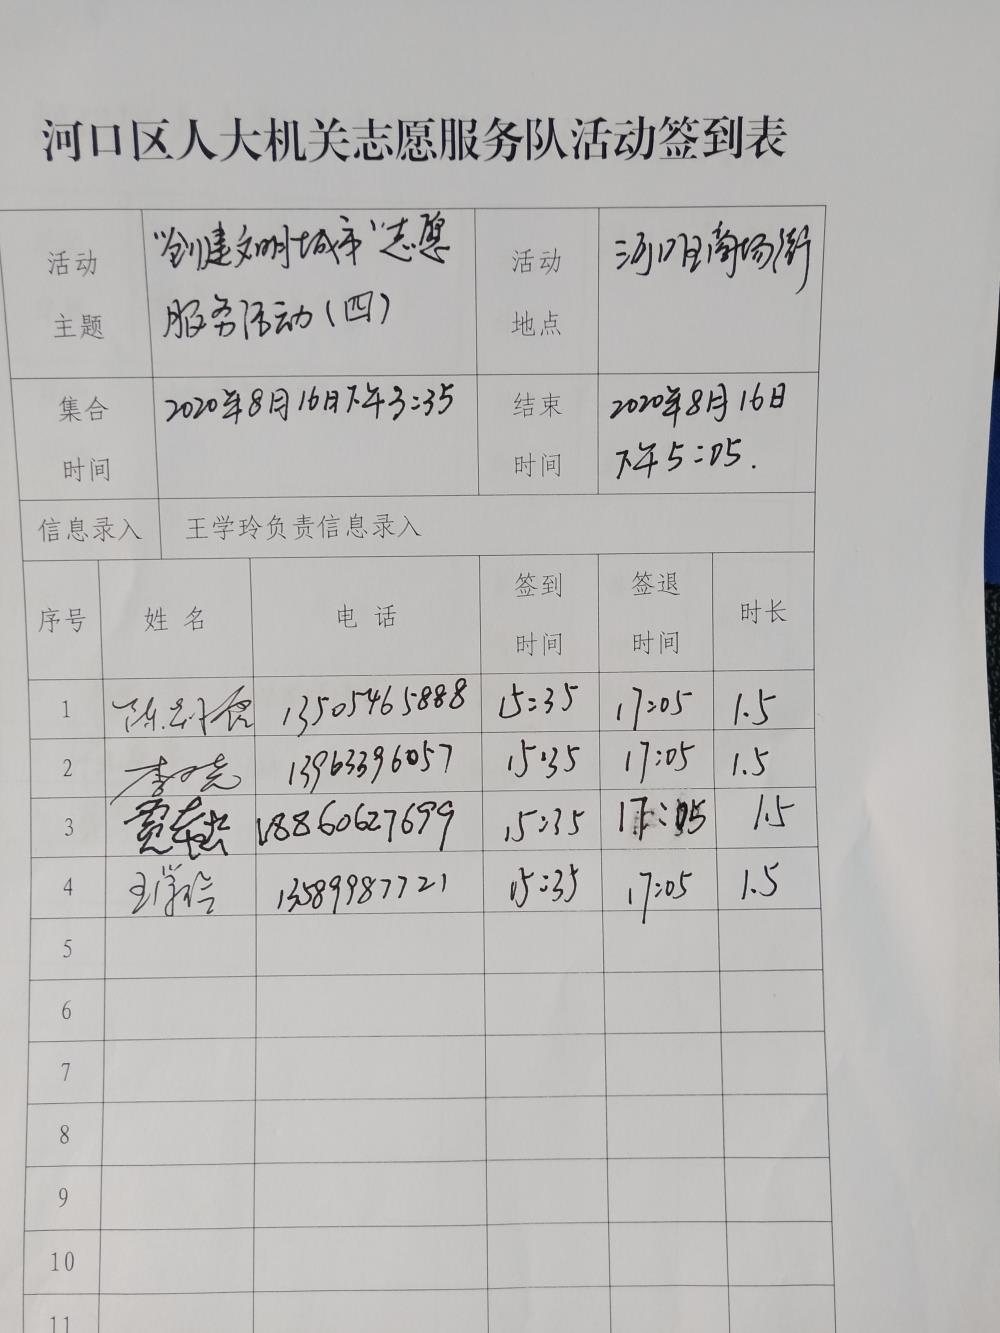 河口区人大机关志愿服务队活动签到表
活动 主题 "创建文明城市"志愿 服务活动(四) 活动 地点 河口区商场街
集合 时间 2020年8月16日下午3:35 结束 时间 2020年8月16日 下午5:05.
信息录入 王学玲负责信息录入
序号 姓名 电话 签到 时间 签退 时间 时长
1 13505465888 15:35 17:05 1.5
2 李晓亮 13963396057 15:35 17:05 1.5
3 18860627699 15:35 17:05 1.5
4 王学玲 13589987721 15:35 17:05 1.5
5
6
7
8
9
10
11